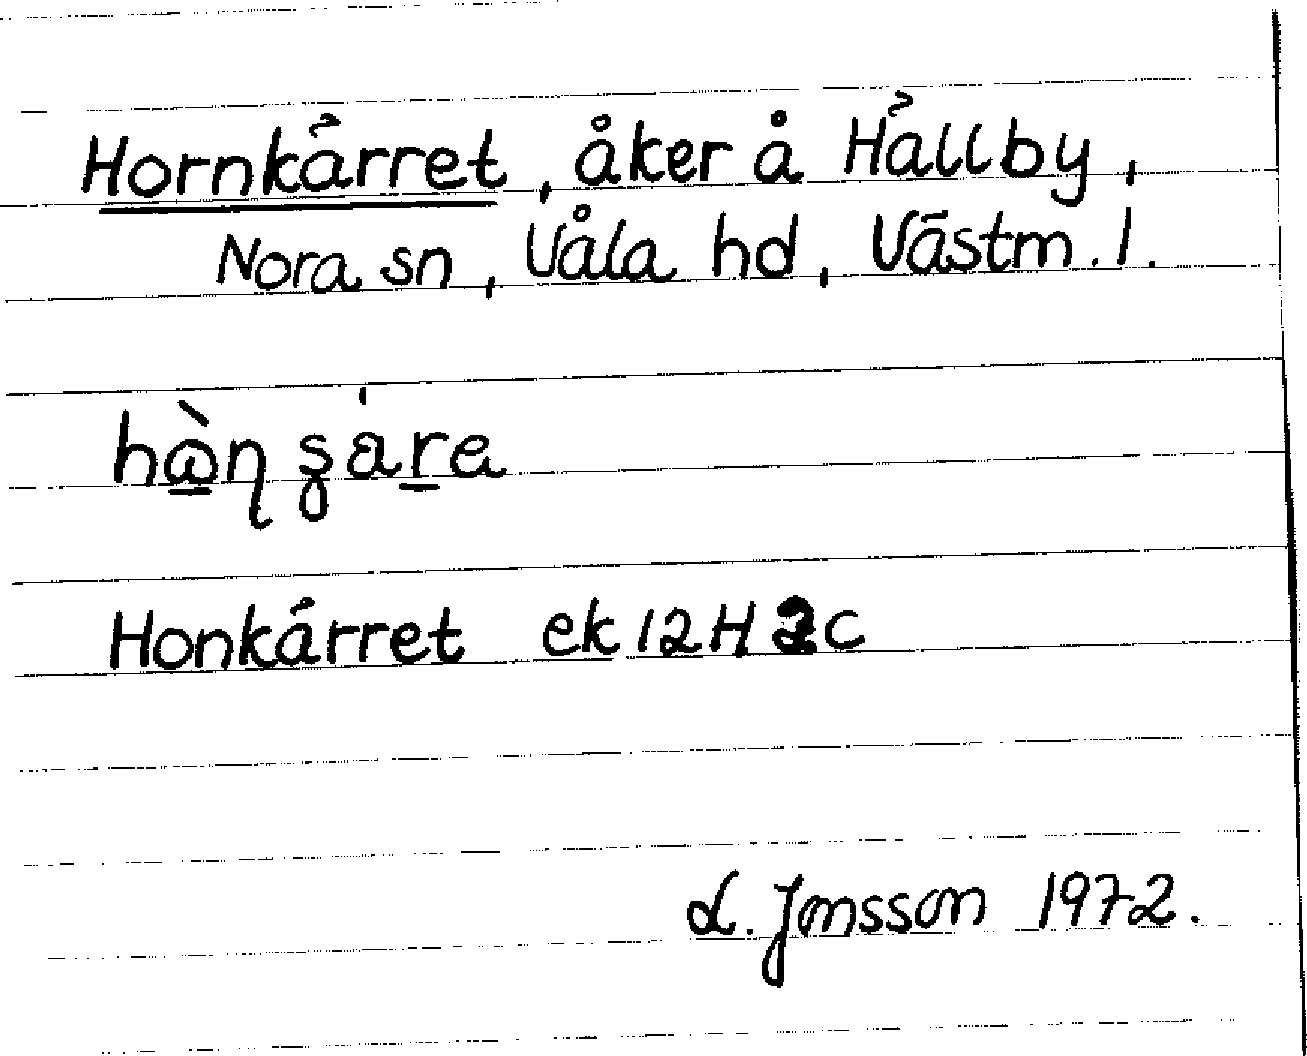 Hornkärret, åker å Hällby,
Nora sn, Våla hd, Västm. l.
Honkärret ek 12H 2c
L. Jonsson 1972.